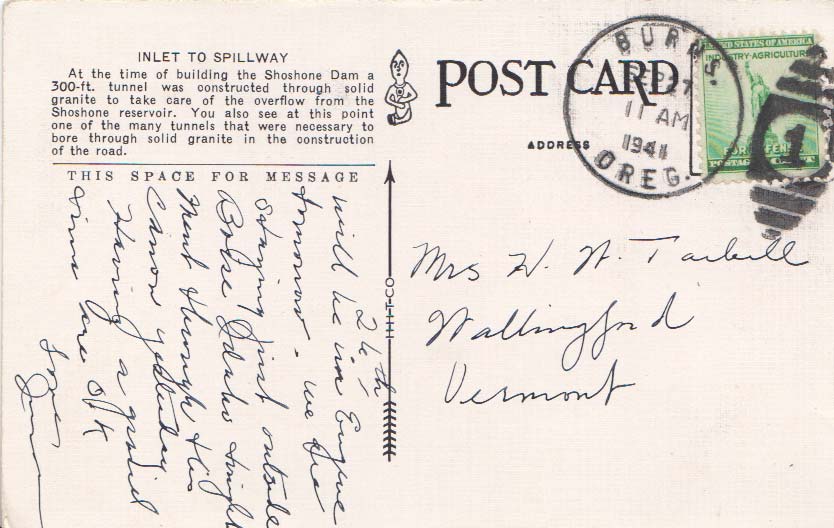 INLET TO SPILLWAY
At the time of building the Shoshone Dam a
300-ft. tunnel was constructed through solid
granite to take care of the overflow from the
Shoshone reservoir. You also see at this point
one of the many tunnels that were necessary to
bore through solid granite in the construction
of the road.
THIS SPACE FOR MESSAGE
26th
will be in Eugene
tomorrow - we are
staying just outside
Boise Idaho tonight
Went through this
Canon yesterday
Having a
time are OK
Love
HHTCO
POST CARD
ADDRESS
BURNS.
27
11 AM
1941
OREG.
UNITED STATES OF AMERICA
INDUSTRY-AGRICULTURE
FOR DEFENSE
POSTAGE
1
Mrs W. A. Tarbell
Wallingford
Vermont